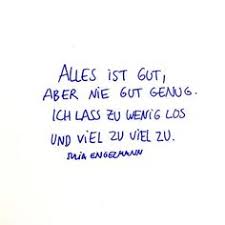 ALLES IST GUT,
ABER NIE GUT GENUG.
ICH LASS ZU WENIG LOS
UND VIEL ZU VIEL ZU.
JULIA ENGELMANN